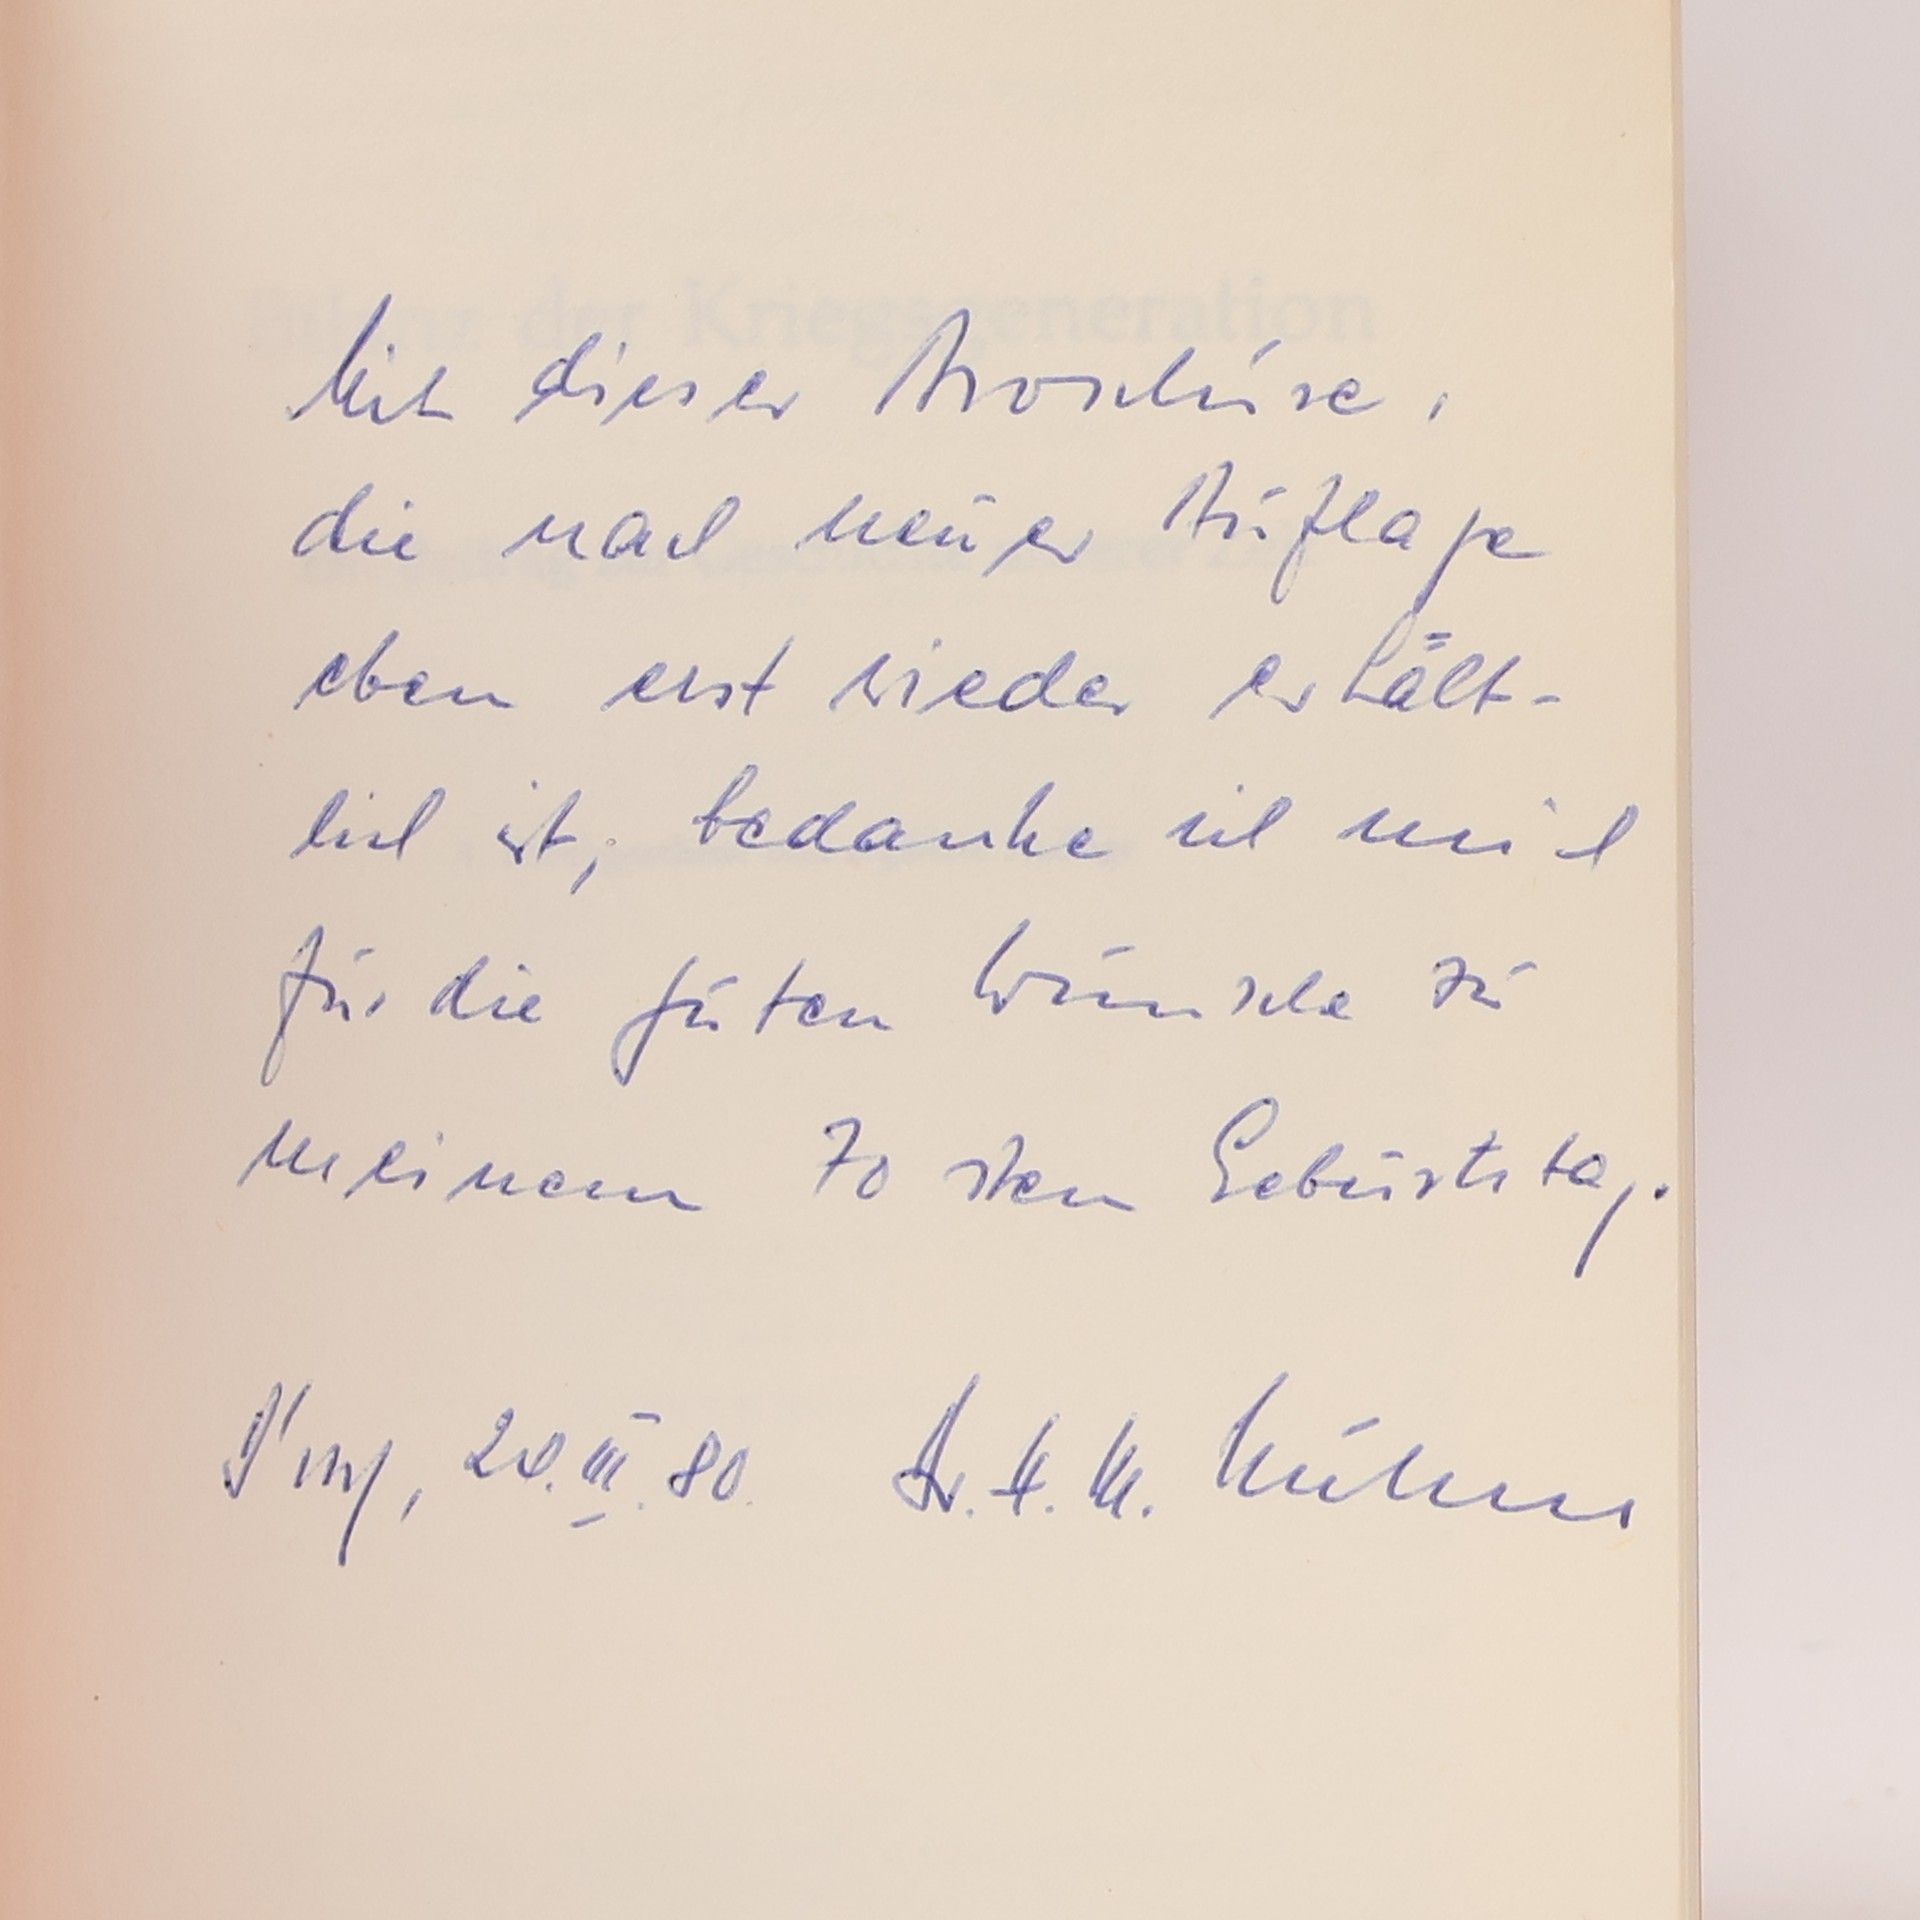 Bilanz der Kriegsgeneration
Mit dieser Broschüre,
die nach neuer Auflage
eben erst wieder erhält-
lich ist, bedanke ich mich
für die guten Wünsche zu
meinem 70sten Geburtstag.
20.III.80. Dr. H. M.